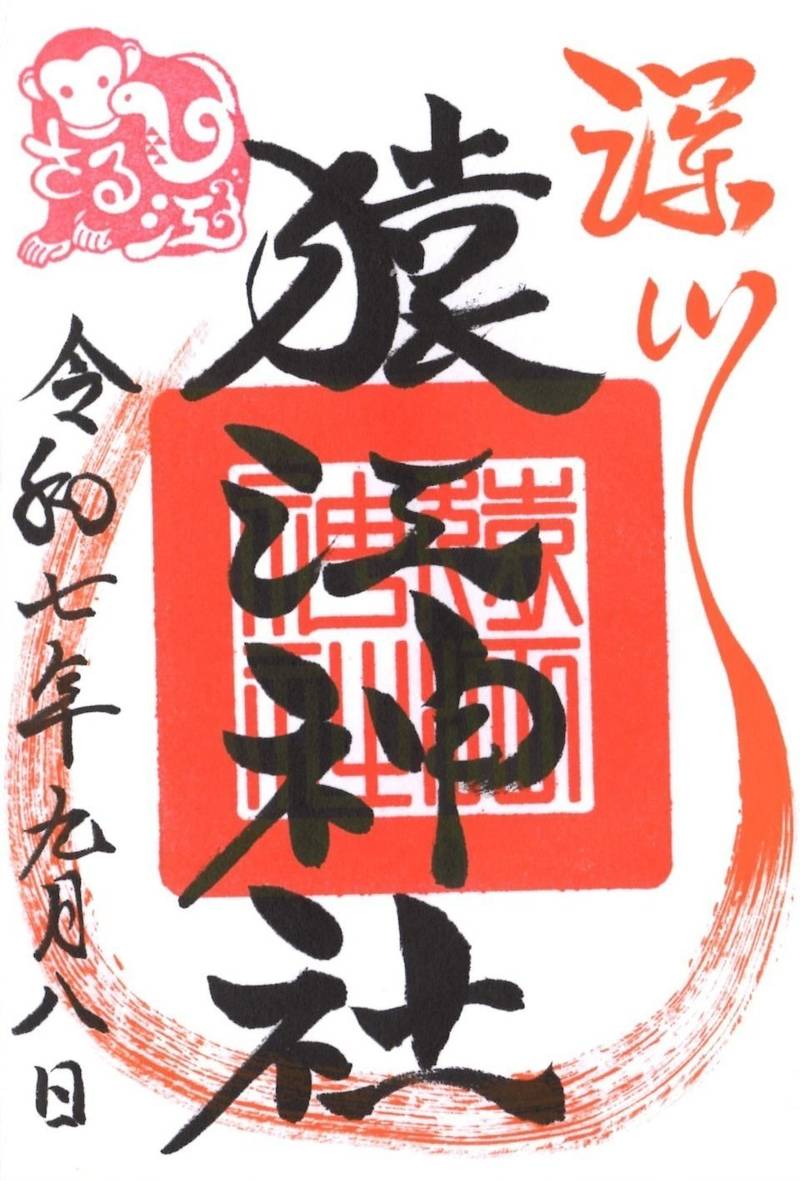 深川
猿江神社
猿江
神社
さる江
令和七年九月八日